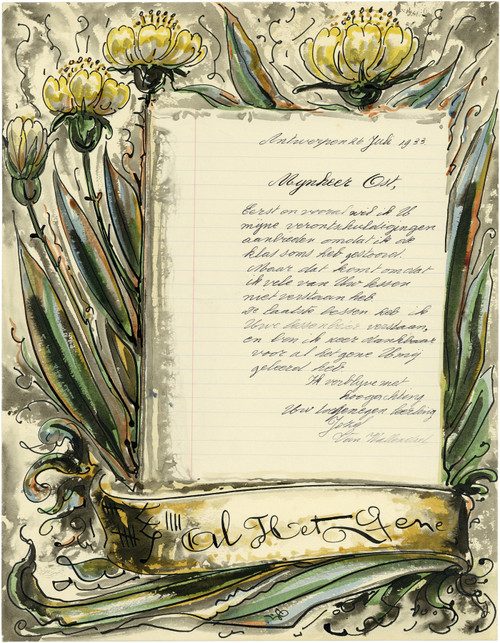 Antwerpen 26 Juli 1933.
Mynheer Ost,
Eerst en vooral wil ik U
mijne verontschuldigingen
aanbieden omdat ik de
klas soms heb gestoord.
Maar dat komt omdat
ik vele van Uw lessen
niet verstaan heb.
De laatste lessen heb ik
verstaan,
en ben ik zeer dankbaar
voor al het gene U my
geleerd heb
Ik verblijve met
hoogachting
Uw leerling
Van
Al Het Gene